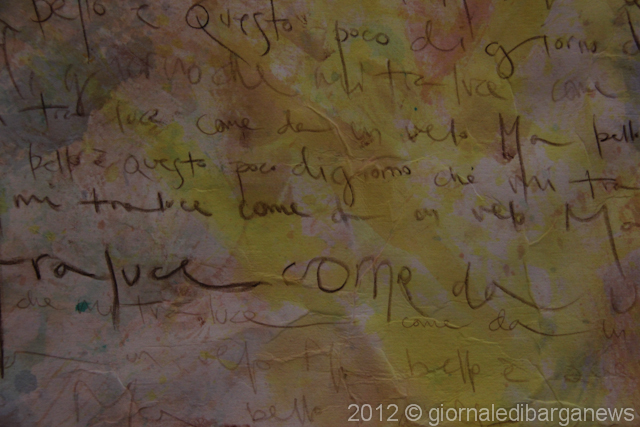 bello è Questo poco di giorno
giorno che mi traluce come
traluce come da un velo Ma bello
bello è questo poco di giorno che mi tra
mi traluce come da un velo Ma
traluce come da
che mi traluce come da un
un velo Ma bello è
Ma bello
2012 © giornaledibarganews